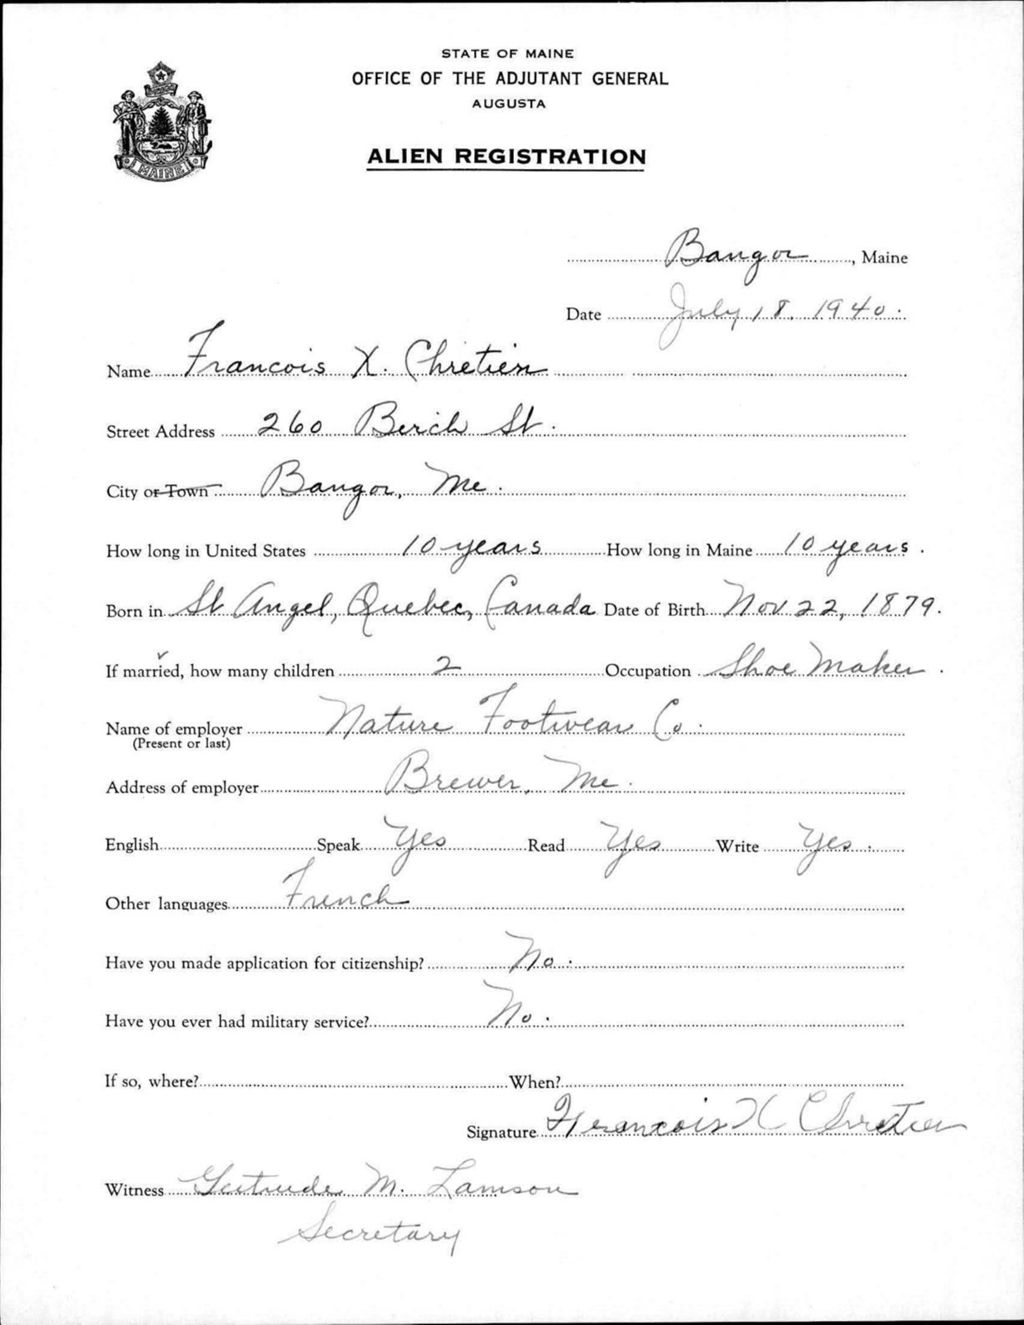 STATE OF MAINE
OFFICE OF THE ADJUTANT GENERAL
AUGUSTA
ALIEN REGISTRATION
MAINE
Bangor, Maine
Date July 18, 1940.
Name Francois X. Chretien
Street Address 260 Berch St.
City or Town Bangor, Me.
How long in United States 10 years How long in Maine 10 years.
Born in St Angel, Quebec, Canada Date of Birth Nov 22, 1879.
If married, how many children 2 Occupation Shoe Maker.
Name of employer Nature Footwear Co.
(Present or last)
Address of employer Brewer, Me.
English Speak Yes Read Yes Write Yes.
Other languages French
Have you made application for citizenship? No.
Have you ever had military service? No.
If so, where? When?
Signature Francois X Chretien
Witness Gertrude M. Lamson
Secretary